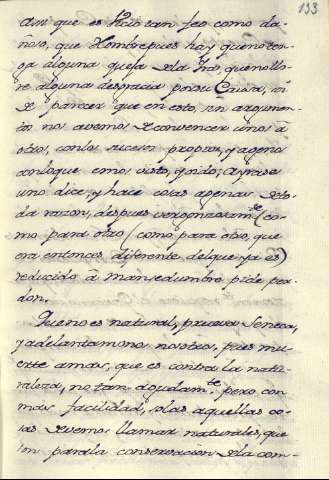 133
aun que es Vicio tan feo como da-
ñoso, que Hombre pues hay que no ten-
ga alguna queja de la Ira, que no llo-
re alguna desgracia por su Causa, soi
de parecer que en esto, sin argumen-
tos nos avemos de convencer unos á
otros, con los sucesos propios, y agenos
con lo que emos visto, y oido; Ayrase
uno dice, y hace cosas agenas de to-
da razon, despues vergonzosamte (co-
mo para otro (como para otro, que
era entonces diferente del que ya es)
reducido á mansedumbre pide per-
don.
Que no es natural, prueva Seneca,
y adelantamonos nosotros, pues mu-
estra amas, que es contra la natu-
raleza, no tan agudamte pero con
mas facilidad, solas aquellas co-
sas devemos llamar naturales, que
son para la conservacion de la com-